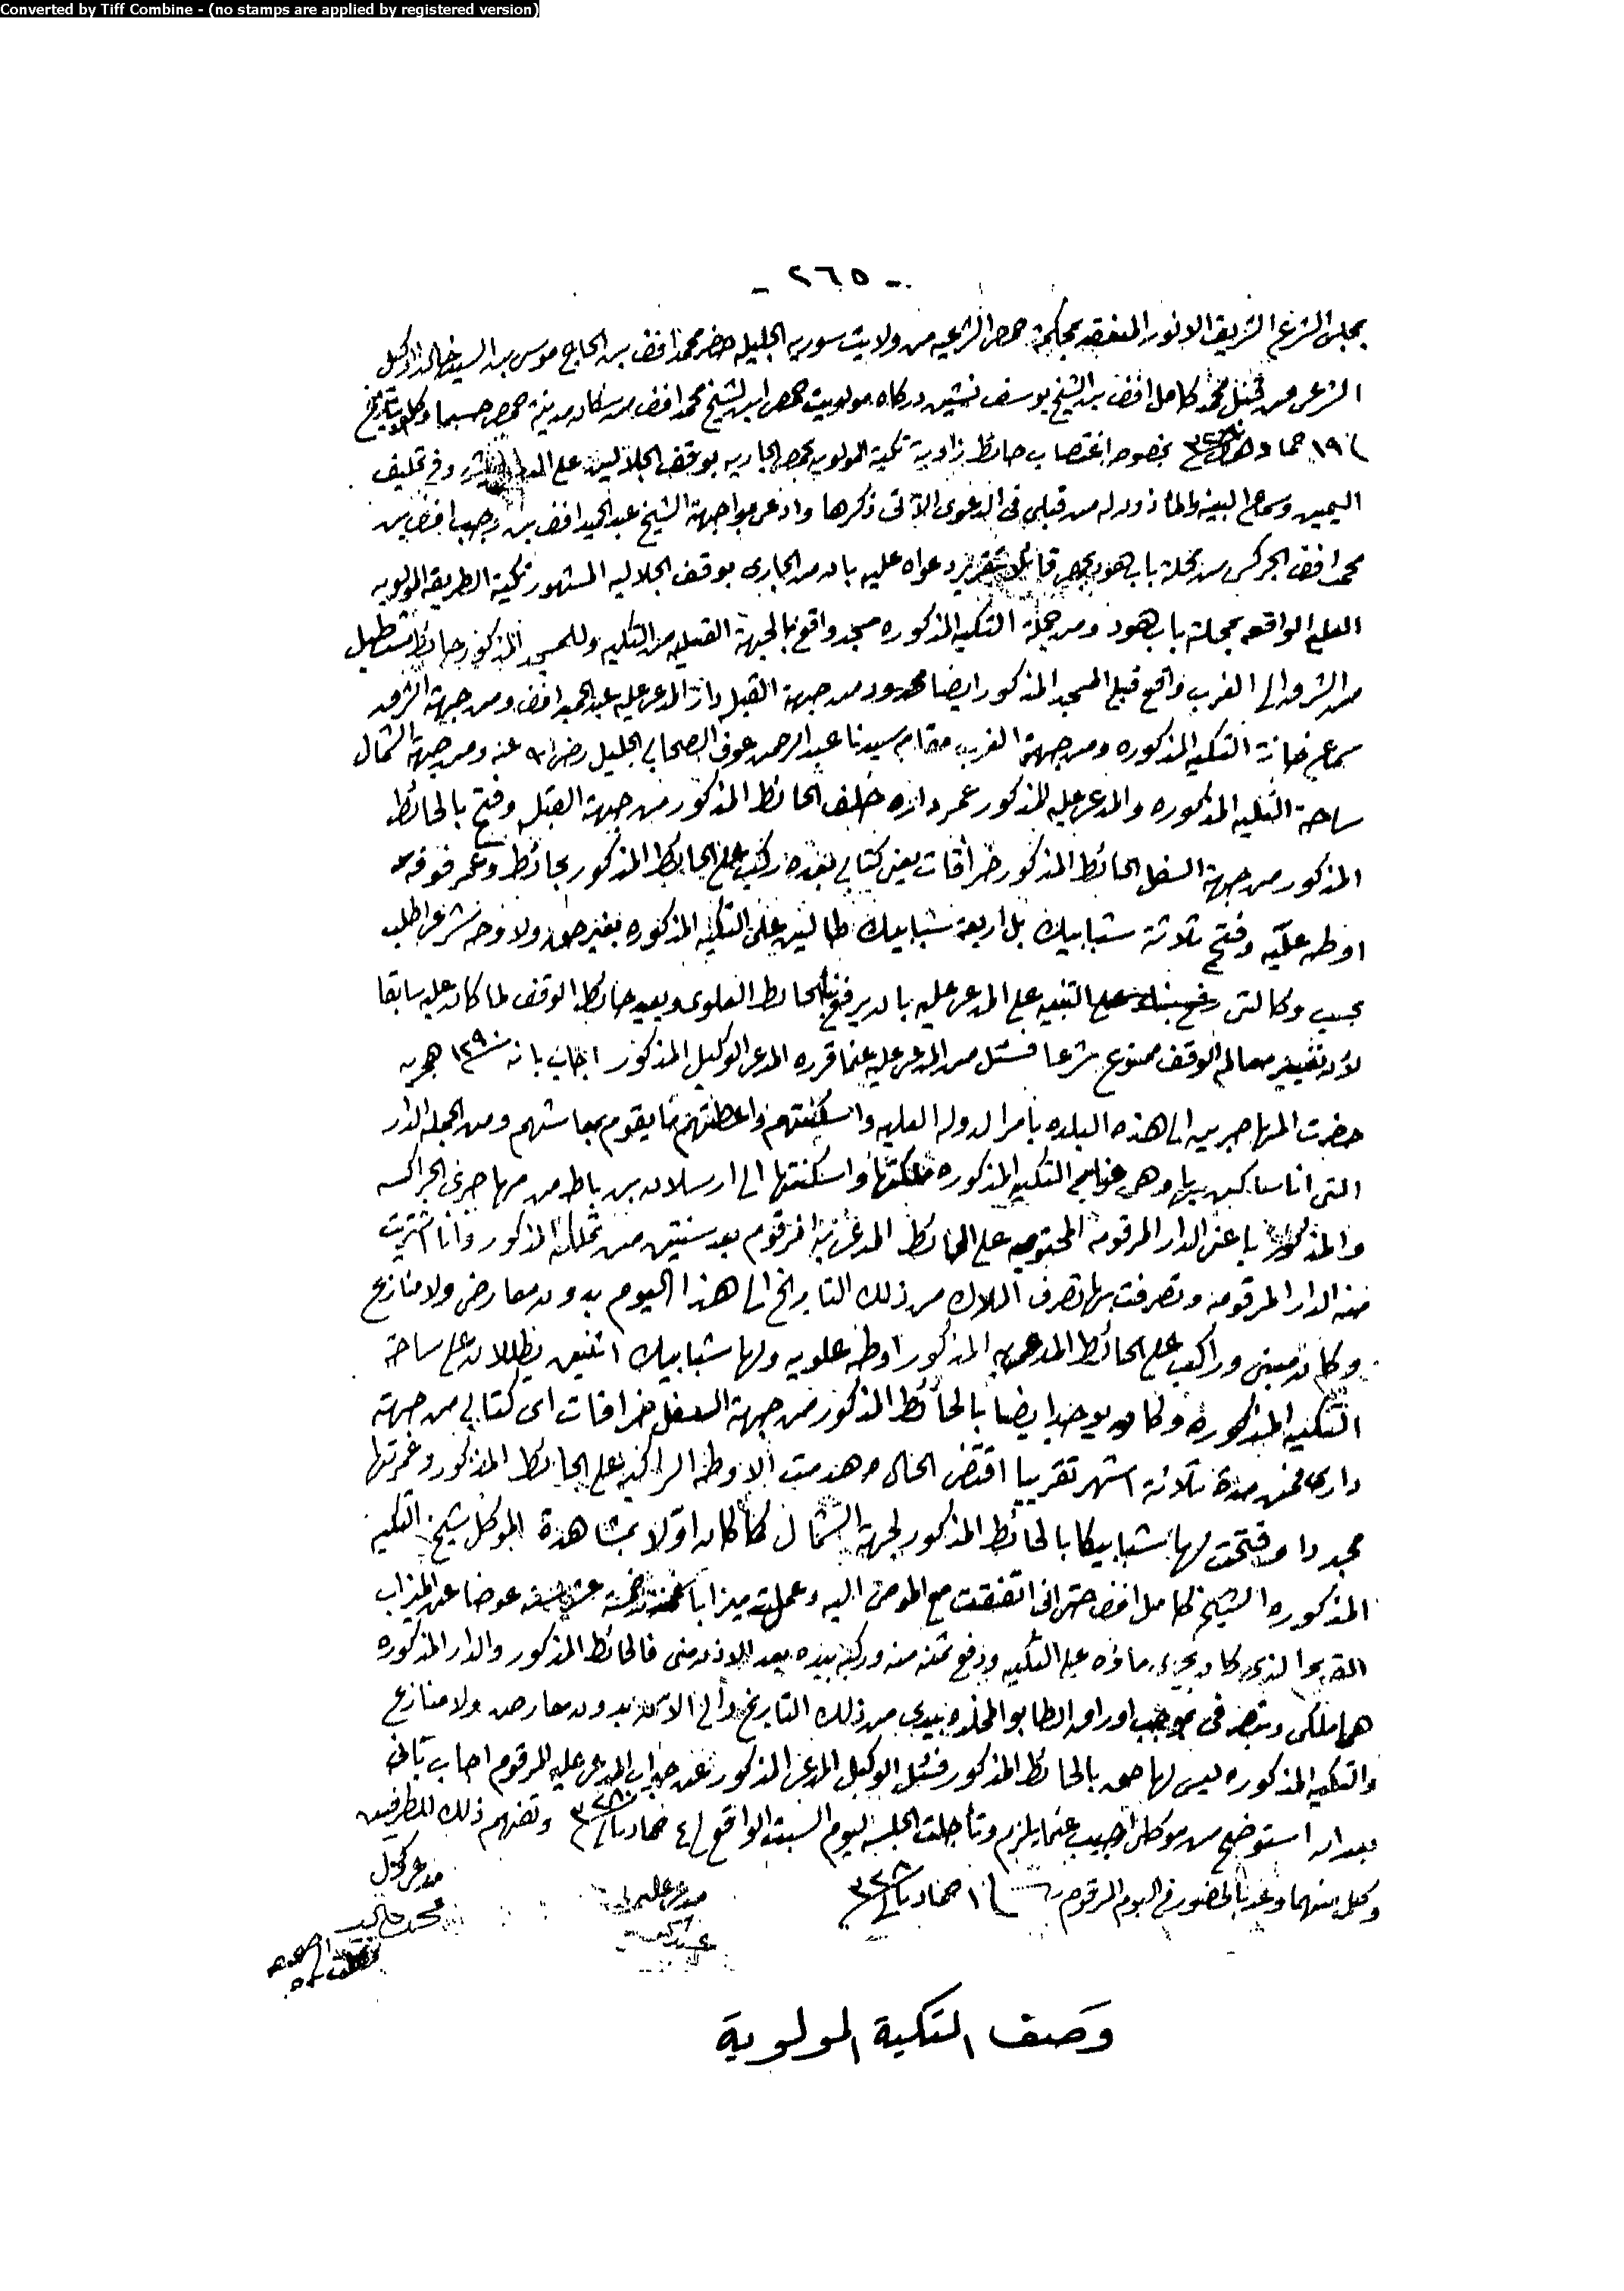 Converted by Tiff Combine - (no stamps are applied by registered version)
- ٢٦٥ -
بمجلس الشرع الشريف الانور المنعقد بمحكمة حمص الشرعيه من ولايت سوريه الجليله حضر محمد افندي بن الحاج موسى بن السيد خالد الوكيل
الشرعي من قبل محمد كامل افندي بن الشيخ يوسف نشين دركاه مولويت حمص ابن الشيخ محمد افندي من سكان مدينة حمص حسبما وكله بتاريخ
١٩ جماد بخصوص اغتصاب حائط زاوية تكية المولويه بحمص الجاريه بوقف الجلاليين على وفي تحليف
اليمين وسماع البينه والمأذون له من قبلي في الدعوى الآتي ذكرها وادعى بمواجهة الشيخ عبد الحميد افندي بن رجب افندي بن
محمد افندي الجركس من محلة باب هود بحمص قائلا بتقرير دعواه عليه بان من الجاري بوقف الجلاليه المشهور تكية الطريقه المولويه
العليه الواقعه بمحلة باب هود ومن جملة التكيه المذكوره مسجد واقع بالجهة القبليه من التكيه وللمسجد المذكور حائط مستطيل
من الشرق الى الغرب واقع قبلي المسجد المذكور ايضا محدود من جهة القبله دار المدعى عليه عبد الحميد افندي ومن جهة الشرق
سماع خانة التكيه المذكوره ومن جهة الغرب مقام سيدنا عبد الرحمن عوف الصحابي الجليل رضي الله عنه ومن جهة الشمال
ساحة التكيه المذكوره والمدعى عليه المذكور عمر داره خلف الحائط المذكور من جهة القبله وفتح بالحائط
المذكور من جهة السفل الحائط المذكور خراقات يعني كتابي بعده ركب على الحائط المذكور بحائط وعمر فوقه
اوطه عليه وفتح ثلاثة شبابيك بل اربعة شبابيك طالين على التكيه المذكوره بغير حق ولا وجه شرعي اطلب
بحسب وكالتي التنبيه على المدعى عليه بان يرفع الحائط العلوي ويعيد حائط الوقف لما كان عليه سابقا
لأن تغيير معالم الوقف ممنوع شرعا فسئل من المدعى عليه عما قرره المدعي الوكيل المذكور اجاب بانه ١٢٩٠ هجريه
حضرت المهاجرين الى هذه البلده بأمر الدوله العليه واسكنتهم واعطتهم ما يقوم بمعاشهم ومن الجمله الدار
التي انا ساكن بها وهي التكيه المذكوره ملكتها واسكنتها الى ارسلان بن باطر من مهاجري الجراكسه
والمذكور باعني الدار المرقومه المحتويه على الحائط المدعى به المرقوم بعد سنتين من تملكه المذكور وأنا اشتريت
منه الدار المرقومه وتصرفت بها تصرف الملاك من ذلك التاريخ الى هذا اليوم بدون معارض ولا منازع
وكان مبني وراكب على الحائط المدعى به المذكور اوطه علويه ولها شبابيك اثنين يطلان على ساحة
التكيه المذكوره وكان يوجد ايضا بالحائط المذكور من جهة السفل خراقات اي كتابي من جهة
داري فمن مدة ثلاثة اشهر تقريبا اقتضى الحال وهدمت الاوطه الراكبه على الحائط المذكور وعمرتها
مجددا وفتحت لها شبابيكا بالحائط المذكور لجهة الشمال كما كان اولا بمشاهدة الموكل شيخ التكيه
المذكوره الشيخ كامل افندي حتى اني اتفقت مع المومى اليه وعملت ميزابا عوضا عن الميزاب
القديم الذي كان يجري ماؤه على التكيه ودفع ثمنه منه وركبه بيده بعد الاذن مني فالحائط المذكور والدار المذكوره
هما ملكي وتصرفي بموجب اوراق الطابو بيدي من ذلك التاريخ وإلى الآن بدون معارض ولا منازع
والتكيه المذكوره ليس لها حق بالحائط المذكور فسئل الوكيل المدعي المذكور عن جواب المدعى عليه المرقوم اجاب بأني
بعد ان استوضح من موكلي اجيب عما يلزم وتأجلت الجلسه ليوم السبت الواقع ٤ جماد وتفهم ذلك للطرفين
وكل منهما وعد بالحضور في اليوم المرقوم ١ جماد
مدعي وكيل
محمد خالد
مدعى عليه
وصف التكية المولوية